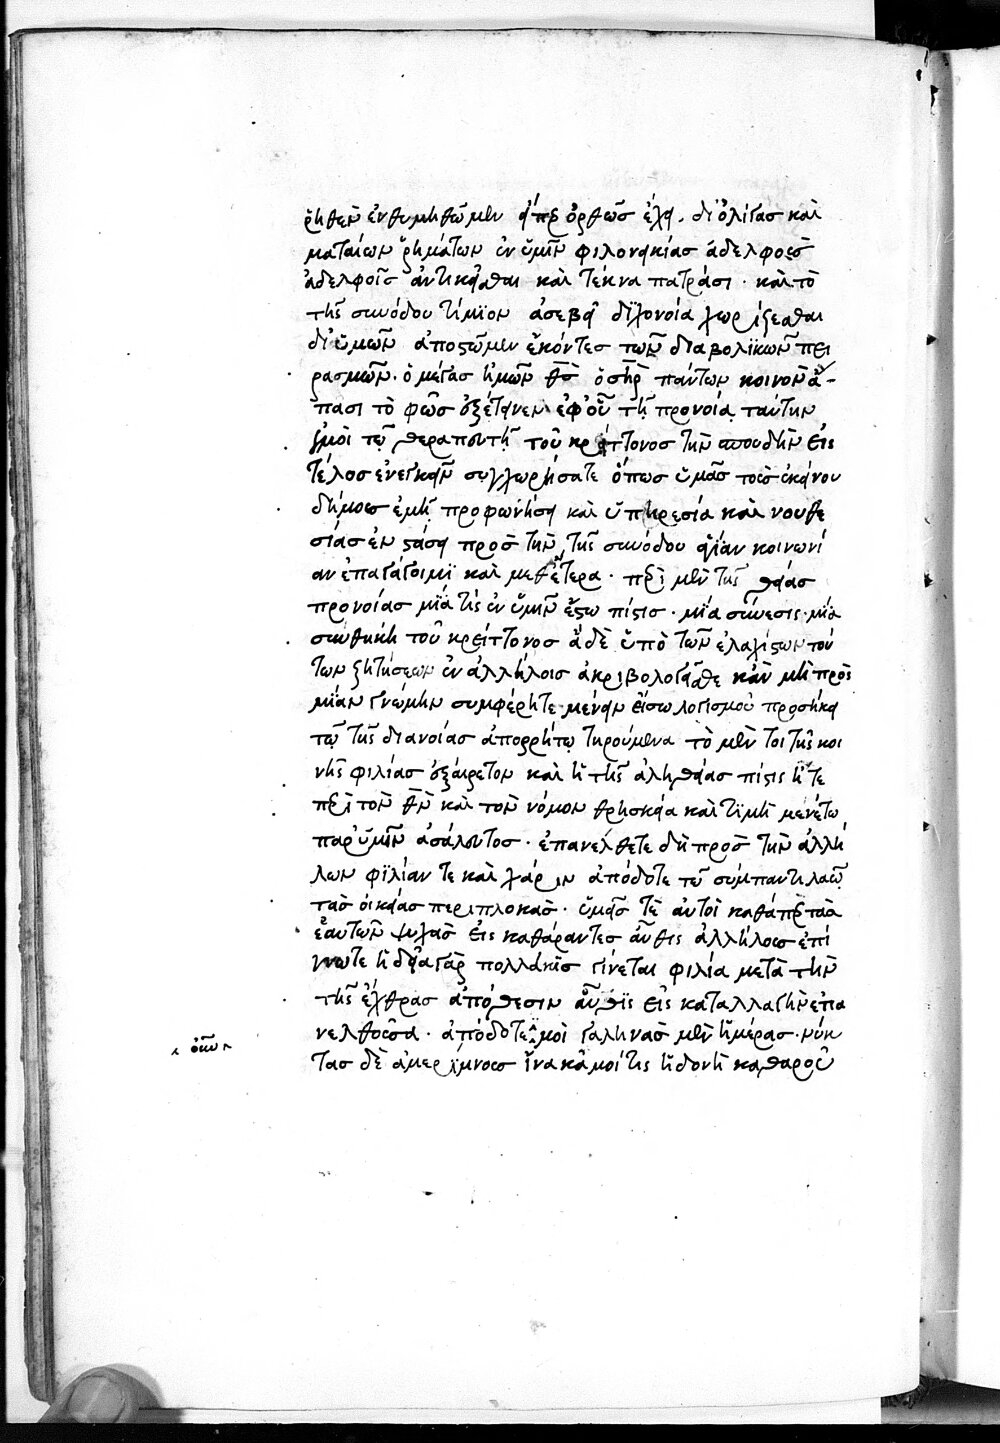 ῥηθὲν ἐνθυμηθῶμεν εἴπερ ὀρθῶς ἔχει. δι ὀλίγας καὶ
ματαίων ῥημάτων ἐν ὑμῖν φιλονεικίας ἀδελφοὺς
ἀδελφοῖς ἀντικεῖσθαι καὶ τέκνα πατράσι. καὶ τὸ
τῆς συνόδου τίμϊον ἀσεβεῖ διχονοία χωρίζεσθαι
δι ὑμῶν ἀποστῶμεν ἑκόντες τῶν διαβολϊκῶν πει
ρασμῶν. ὁ μέγας ἡμῶν θς ὁ σηρ πάντων κοινὸν ἅ-
πασι τὸ φῶς ἐξέτεινεν ἐφ οὗ τῇ προνοίᾳ ταύτην
ἐμοὶ τῷ θεραπευτῇ τοῦ κρείττονος τὴν σπουδὴν εἰς
τέλος ἐνεγκεῖν συγχωρήσατε ὅπως ὑμᾶς τοὺς ἐκείνου
δήμους ἐμῇ προφωνήσει καὶ ὑπηρεσία καὶ νουθε
σίας ἐν στάσει πρὸς τὴν τῆς συνόδου κοινωνί
αν ἐπαγάγοιμϊ καὶ μεθ ἕτερα. περὶ μὲν τῆς θείας
προνοίας μΐα τίς ἐν ὑμῖν ἔστω πίστις. μΐα σύνεσις. μία
συνθήκη τοῦ κρείττονος ἃ δὲ ὑπὸ τῶν ἐλαχίστων τού
των ζητήσεων ἐν ἀλλήλοις ἀκριβολογεῖσθε κἂν μὴ πρὸς
μΐαν γνώμην συμφέρητε μένειν εἴσω λογισμοῦ προσήκει
τῷ τῆς διανοίας ἀπορρήτῳ τηρούμενα τὸ μὲν τοι τῆς κοι
νῆς φιλίας ἐξαίρετον καὶ ἡ τῆς ἀληθείας πίστις ἥ τε
περὶ τὸν θν καὶ τὸν νόμον θρησκεία καὶ τϊμὴ μενέτω
παρ ὑμῖν ἀσάλευτος. ἐπανέλθετε δὴ πρὸς τὴν ἀλλή
λων φϊλίαν τε καὶ χάριν ἀπόδοτε τῷ σύμπαντι λαῷ
τὰς οἰκείας περιπλοκάς. ὑμεῖς τὲ αὐτοὶ καθάπερ τὰς
ἑαυτῶν ψυχὰς εἰς καθάραντες αὖθις ἀλλήλους ἐπί
γνωτε ἡδεῖα γὰρ πολλάκϊς γίνεται φιλία μετὰ τὴν
τῆς ἔχθρας ἀπόθεσιν αὖθϊς εἰς καταλλαγὴν ἐπα
νελθοῦσα. ἀπόδοτε μοὶ γαληνὰς μὲν ἡμέρας. νύκ
τας δὲ ἀμερΐμνους ἵνα κἀμοί τις ἡδονὴ καθαροῦ